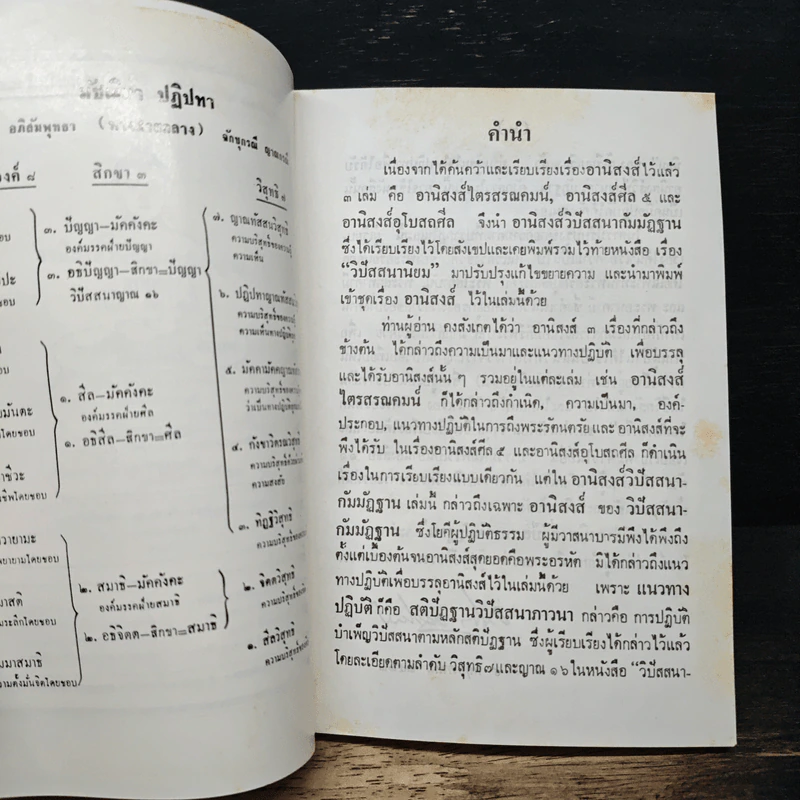 ปฏิปทา
อภิสัมพุทธา
จักขุกรณี
องค์ ๘
สิกขา ๓
วิสุทธิ ๗
๓. ปัญญา–มัคคังคะ
องค์มรรคฝ่ายปัญญา
๓. อธิปัญญา–สิกขา=ปัญญา
วิปัสสนาญาณ ๑๖
๑. สีล–มัคคังคะ
องค์มรรคฝ่ายศีล
๑. อธิสีล–สิกขา=ศีล
๒. สมาธิ–มัคคังคะ
องค์มรรคฝ่ายสมาธิ
๒. อธิจิตต–สิกขา=สมาธิ
๗. ญาณทัสสนวิสุทธิ
ความเห็น
๖.
๕.
๔. กังขาวิตรณวิสุทธิ
ความสงสัย
๓. ทิฏฐิวิสุทธิ
๒. จิตตวิสุทธิ
๑. สีลวิสุทธิ
วายามะ
พยายามโดยชอบ
มาสติ
ระลึกโดยชอบ
มาสมาธิ
วามตั้งมั่นจิตโดยชอบ
คำนำ
เนื่องจากได้ค้นคว้าและเรียบเรียงเรื่องอานิสงส์ไว้แล้ว
๓ เล่ม คือ อานิสงส์ไตรสรณคมน์, อานิสงส์ศีล ๕ และ
อานิสงส์อุโบสถศีล จึงนำ อานิสงส์วิปัสสนากัมมัฏฐาน
ซึ่งได้เรียบเรียงไว้โดยสังเขปและเคยพิมพ์รวมไว้ท้ายหนังสือ เรื่อง
“วิปัสสนานิยม” มาปรับปรุงแก้ไขขยายความ และนำมาพิมพ์
เข้าชุดเรื่อง อานิสงส์ ไว้ในเล่มนี้ด้วย
ท่านผู้อ่าน คงสังเกตได้ว่า อานิสงส์ ๓ เรื่องที่กล่าวถึง
ข้างต้น ได้กล่าวถึงความเป็นมาและแนวทางปฏิบัติ เพื่อบรรลุ
และได้รับอานิสงส์นั้น ๆ รวมอยู่ในแต่ละเล่ม เช่น อานิสงส์
ไตรสรณคมน์ ก็ได้กล่าวถึงกำเนิด, ความเป็นมา, องค์-
ประกอบ, แนวทางปฏิบัติในการถึงพระรัตนตรัย และ อานิสงส์ที่จะ
พึงได้รับ ในเรื่องอานิสงส์ศีล ๕ และอานิสงส์อุโบสถศีล ก็ดำเนิน
เรื่องในการเรียบเรียงแบบเดียวกัน แต่ใน อานิสงส์วิปัสสนา-
กัมมัฏฐาน เล่มนี้ กล่าวถึงเฉพาะ อานิสงส์ ของ วิปัสสนา-
กัมมัฏฐาน ซึ่งโยคีผู้ปฏิบัติธรรม ผู้มีวาสนาบารมีพึงได้พึงถึง
ตั้งแต่เบื้องต้นจนอานิสงส์สุดยอดคือพระอรหัต มิได้กล่าวถึงแนว
ทางปฏิบัติเพื่อบรรลุอานิสงส์ไว้ในเล่มนี้ด้วย เพราะ แนวทาง
ปฏิบัติ ก็คือ สติปัฏฐานวิปัสสนาภาวนา กล่าวคือ การปฏิบัติ
บำเพ็ญวิปัสสนาตามหลักสติปัฏฐาน ซึ่งผู้เรียบเรียงได้กล่าวไว้แล้ว
โดยละเอียดตามลำดับ วิสุทธิ ๗ และญาณ ๑๖ ในหนังสือ “วิปัสสนา-